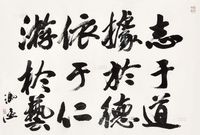 志于道
據於德
依于仁
游於藝